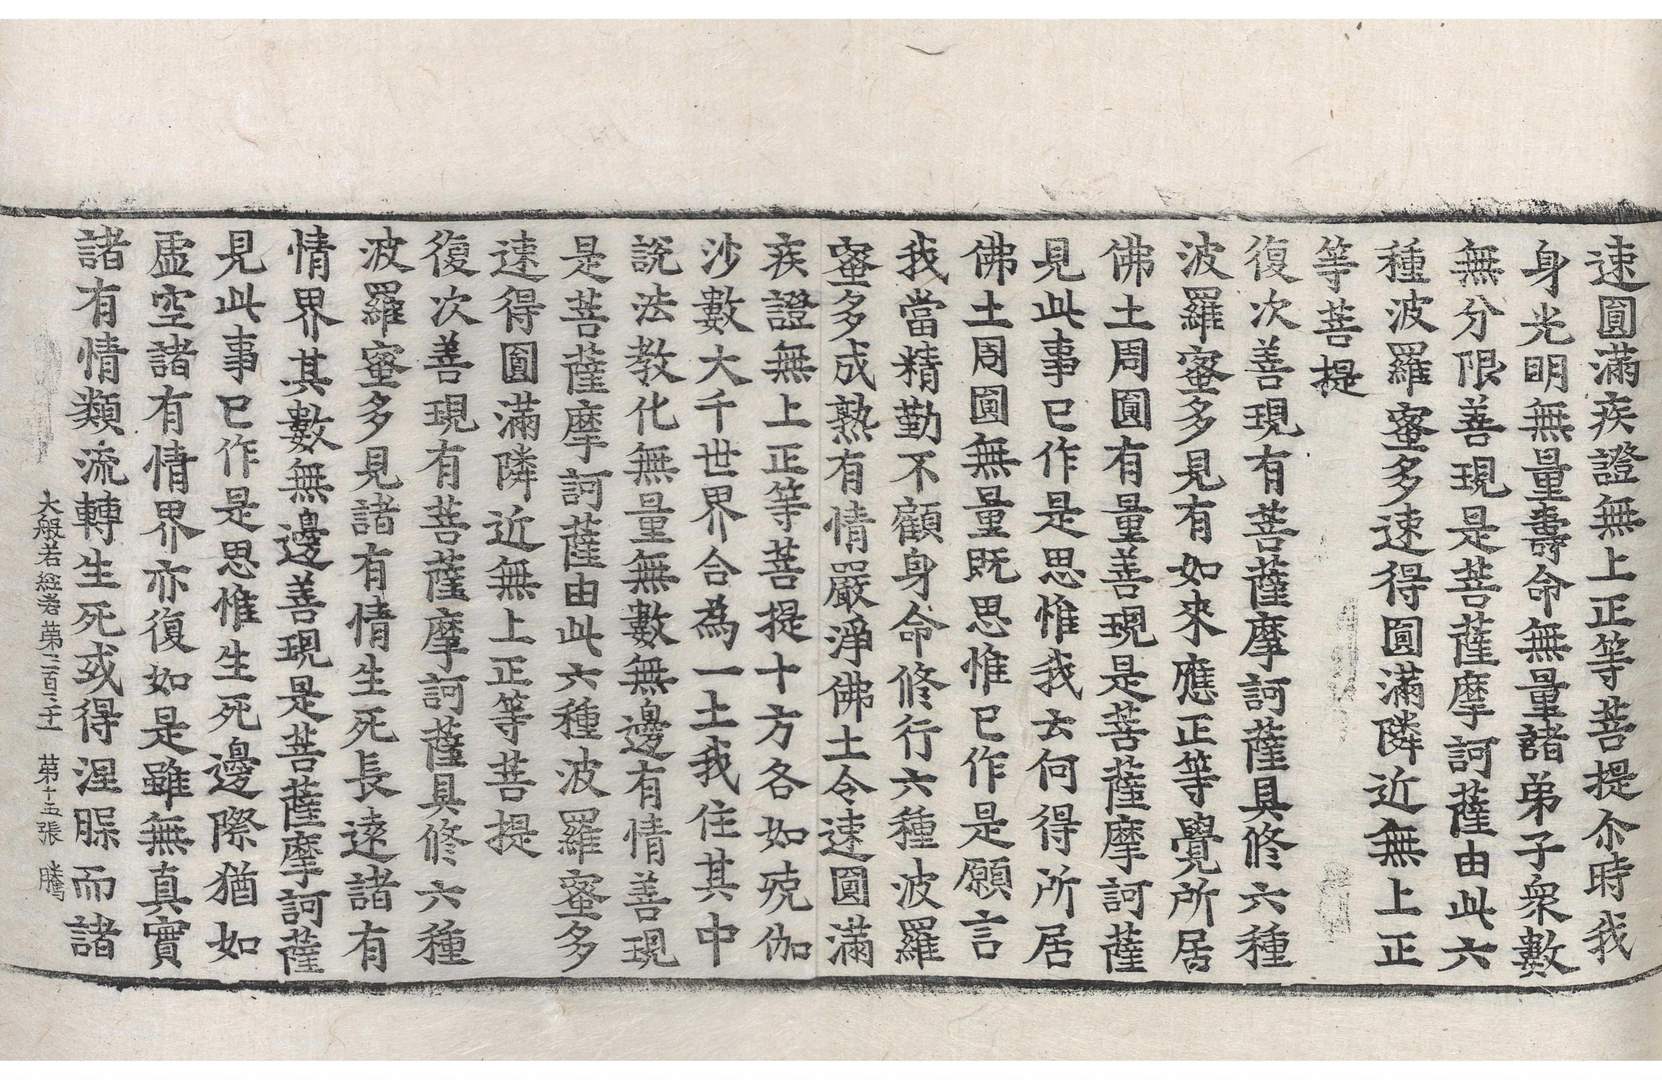 速圓滿疾證無上正等菩提尒時我
身光明無量壽命無量諸弟子衆數
無分限善現是菩薩摩訶薩由此六
種波羅蜜多速得圓滿隣近無上正
等菩提
復次善現有菩薩摩訶薩具修六種
波羅蜜多見有如來應正等覺所居
佛土周圓有量善現是菩薩摩訶薩
見此事已作是思惟我云何得所居
佛土周圓無量旣思惟已作是願言
我當精勤不顧身命修行六種波羅
蜜多成熟有情嚴淨佛土令速圓滿
疾證無上正等菩提十方各如殑伽
沙數大千世界合為一土我住其中
說法教化無量無數無邊有情善現
是菩薩摩訶薩由此六種波羅蜜多
速得圓滿隣近無上正等菩提
復次善現有菩薩摩訶薩具修六種
波羅蜜多見諸有情生死長遠諸有
情界其數無邊善現是菩薩摩訶薩
見此事已作是思惟生死邊際猶如
虛空諸有情界亦復如是雖無真實
諸有情類流轉生死或得涅槃而諸
大般若經卷第三百三十 第十五張 騰